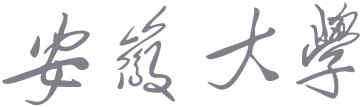 安徽大學